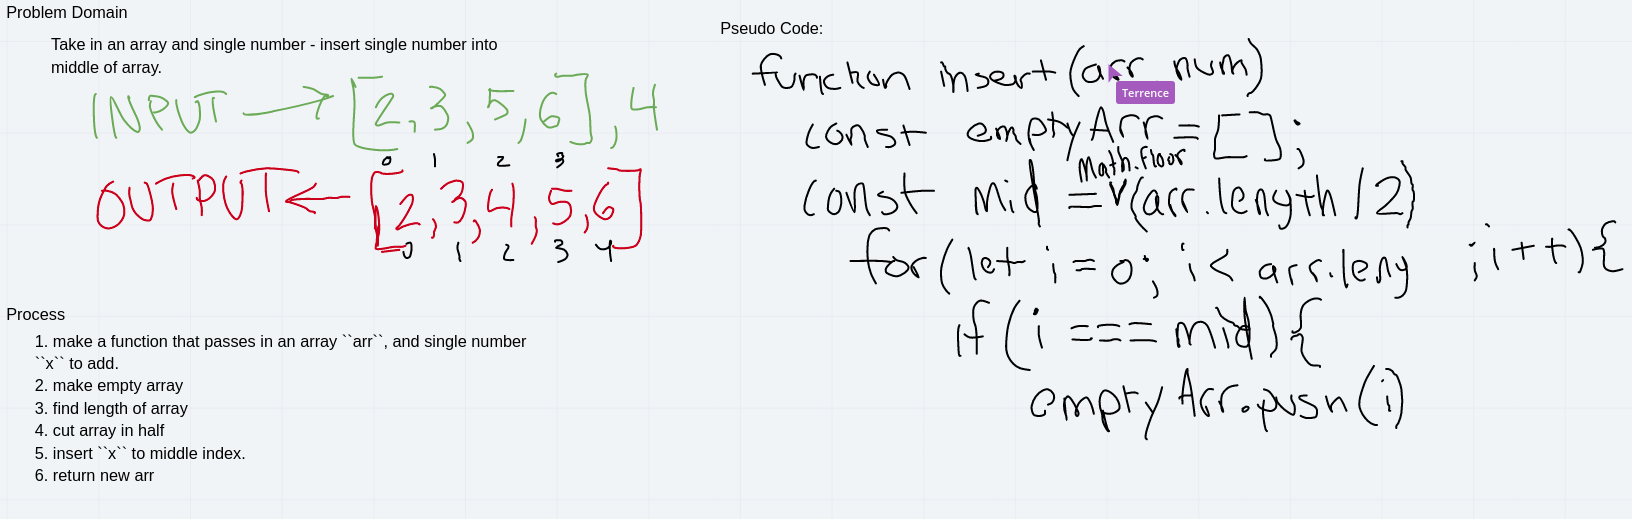 Problem Domain
Take in an array and single number - insert single number into
middle of array.
INPUT → [2,3,5,6],4
0 1 2 3
OUTPUT ← [2,3,4,5,6]
0 1 2 3 4
Process
1. make a function that passes in an array ``arr``, and single number
``x`` to add.
2. make empty array
3. find length of array
4. cut array in half
5. insert ``x`` to middle index.
6. return new arr
Pseudo Code:
function insert(arr num)
Terrence
const emptyArr = [];
Math.floor
const mid = (arr.length / 2)
for(let i = 0; i < arr.leng ; i++){
if(i === mid){
emptyArr.push(i)